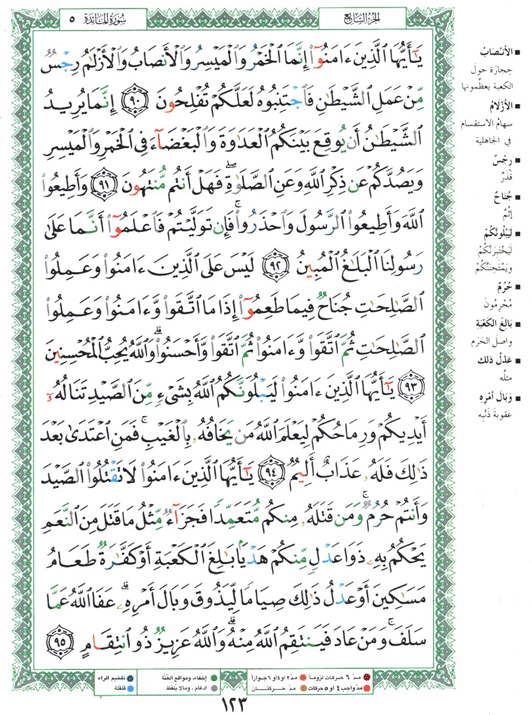 الجزء السابع
سورة المائدة ٥
يَٰٓأَيُّهَا ٱلَّذِينَ ءَامَنُوٓا۟ إِنَّمَا ٱلْخَمْرُ وَٱلْمَيْسِرُ وَٱلْأَنصَابُ وَٱلْأَزْلَٰمُ رِجْسٌ
مِّنْ عَمَلِ ٱلشَّيْطَٰنِ فَٱجْتَنِبُوهُ لَعَلَّكُمْ تُفْلِحُونَ ٩٠ إِنَّمَا يُرِيدُ
ٱلشَّيْطَٰنُ أَن يُوقِعَ بَيْنَكُمُ ٱلْعَدَٰوَةَ وَٱلْبَغْضَآءَ فِى ٱلْخَمْرِ وَٱلْمَيْسِرِ
وَيَصُدَّكُمْ عَن ذِكْرِ ٱللَّهِ وَعَنِ ٱلصَّلَوٰةِ ۖ فَهَلْ أَنتُم مُّنتَهُونَ ٩١ وَأَطِيعُوا۟
ٱللَّهَ وَأَطِيعُوا۟ ٱلرَّسُولَ وَٱحْذَرُوا۟ ۚ فَإِن تَوَلَّيْتُمْ فَٱعْلَمُوٓا۟ أَنَّمَا عَلَىٰ
رَسُولِنَا ٱلْبَلَٰغُ ٱلْمُبِينُ ٩٢ لَيْسَ عَلَى ٱلَّذِينَ ءَامَنُوا۟ وَعَمِلُوا۟
ٱلصَّٰلِحَٰتِ جُنَاحٌ فِيمَا طَعِمُوٓا۟ إِذَا مَا ٱتَّقَوا۟ وَّءَامَنُوا۟ وَعَمِلُوا۟
ٱلصَّٰلِحَٰتِ ثُمَّ ٱتَّقَوا۟ وَّءَامَنُوا۟ ثُمَّ ٱتَّقَوا۟ وَّأَحْسَنُوا۟ ۗ وَٱللَّهُ يُحِبُّ ٱلْمُحْسِنِينَ
٩٣ يَٰٓأَيُّهَا ٱلَّذِينَ ءَامَنُوا۟ لَيَبْلُوَنَّكُمُ ٱللَّهُ بِشَىْءٍ مِّنَ ٱلصَّيْدِ تَنَالُهُۥٓ
أَيْدِيكُمْ وَرِمَاحُكُمْ لِيَعْلَمَ ٱللَّهُ مَن يَخَافُهُۥ بِٱلْغَيْبِ ۚ فَمَنِ ٱعْتَدَىٰ بَعْدَ
ذَٰلِكَ فَلَهُۥ عَذَابٌ أَلِيمٌ ٩٤ يَٰٓأَيُّهَا ٱلَّذِينَ ءَامَنُوا۟ لَا تَقْتُلُوا۟ ٱلصَّيْدَ
وَأَنتُمْ حُرُمٌ ۚ وَمَن قَتَلَهُۥ مِنكُم مُّتَعَمِّدًا فَجَزَآءٌ مِّثْلُ مَا قَتَلَ مِنَ ٱلنَّعَمِ
يَحْكُمُ بِهِۦ ذَوَا عَدْلٍ مِّنكُمْ هَدْيًۢا بَٰلِغَ ٱلْكَعْبَةِ أَوْ كَفَّٰرَةٌ طَعَامُ
مَسَٰكِينَ أَوْ عَدْلُ ذَٰلِكَ صِيَامًا لِّيَذُوقَ وَبَالَ أَمْرِهِۦ ۗ عَفَا ٱللَّهُ عَمَّا
سَلَفَ ۚ وَمَنْ عَادَ فَيَنتَقِمُ ٱللَّهُ مِنْهُ ۗ وَٱللَّهُ عَزِيزٌ ذُو ٱنتِقَامٍ ٩٥
الأنصَابُ
حجارة حول
الكعبة يعظمونها
الأزْلَامُ
سهام الاستقسام
في الجاهلية
رِجْسٌ
قَذَرٌ
جُنَاحٌ
إثْمٌ
لَيَبْلُوَنَّكُمُ
لَيَخْتَبِرَنَّكُمْ
وَيَمْتَحِنَنَّكُمْ
حُرُمٌ
مُحْرِمُونَ
بَالِغَ الكَعْبَةِ
واصل الحَرَم
عَدْلُ ذلك
مثلُه
وَبَالَ أَمْرِهِ
عقوبة ذَنْبِه
مدّ ٦ حركات لزوماً
مدّ ٢ او ٤ او ٦ جوازاً
إخفاء، ومواقع الغُنَّة
تفخيم الراء
مدّ واجب ٤ او ٥ حركات
مدّ حركتان
ادغام، ومالا يُلفَظ
قلقلة
١٢٣